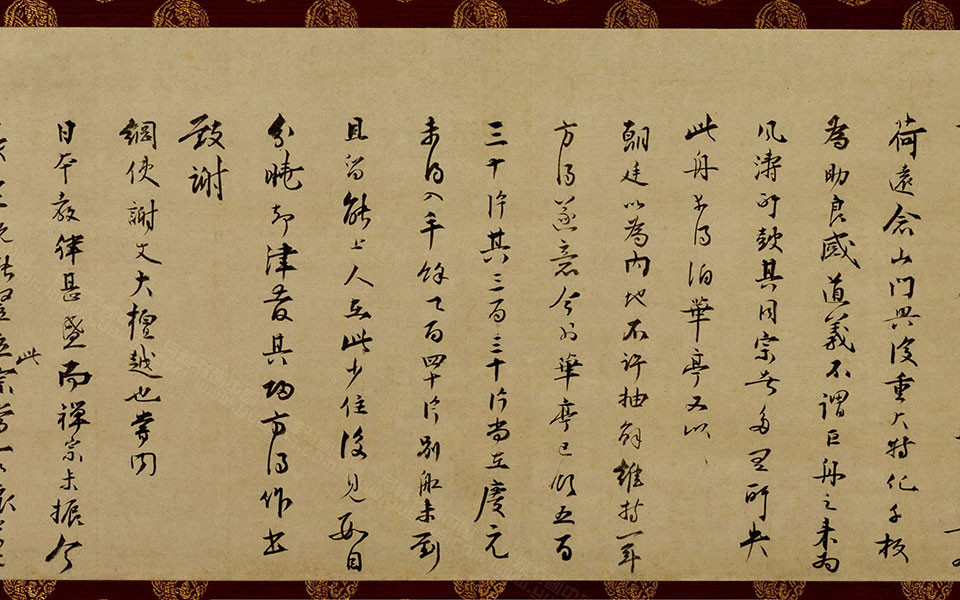 荷遠念山門興復重大特化千板
為助良感道義不謂巨舟之来為
風濤所皷其同宗者多有所失
此舟得泊華亭又以
朝廷以為内地不許抽解維持一年
方得遂意今到華亭已領五百
三十片其三百三十片尚在慶元
未得入手餘乃百四十片別船未到
且留能上人在此少住後見數目
分曉却津發其歸方得作書
致謝
綱使謝丈大檀越也嘗聞
日本教律甚盛而禪宗未振今
此